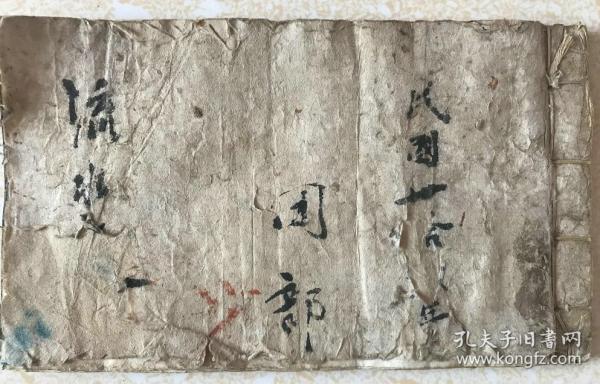 民國一合年
团部
流水
一
孔夫子旧书网
www.kongfz.com